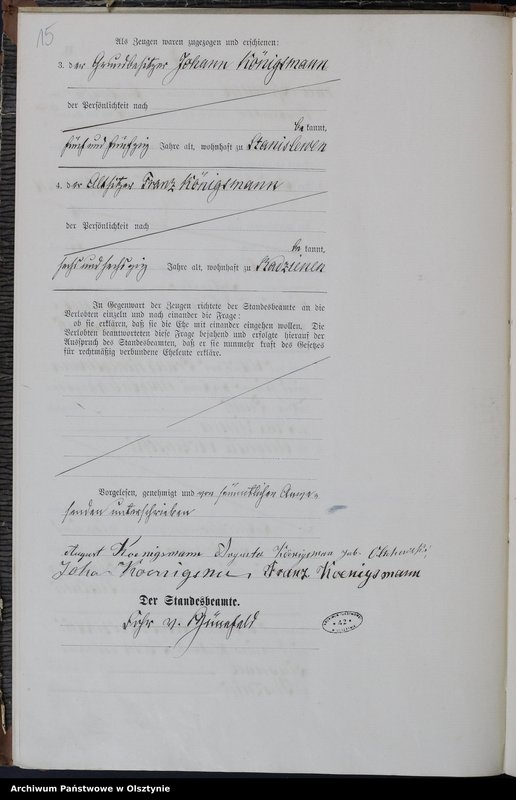 15
Als Zeugen waren zugezogen und erschienen:
3. der Grundbesitzer Johann Königsmann
der Persönlichkeit nach
be kannt,
fünf und fünfzig Jahre alt, wohnhaft zu Stanislewen
4. der Altsitzer Franz Königsmann
der Persönlichkeit nach
be kannt,
sechs und sechszig Jahre alt, wohnhaft zu Radzienen
In Gegenwart der Zeugen richtete der Standesbeamte an die
Verlobten einzeln und nach einander die Frage:
ob sie erklären, daß sie die Ehe mit einander eingehen wollen. Die
Verlobten beantworteten diese Frage bejahend und erfolgte hierauf der
Ausspruch des Standesbeamten, daß er sie nunmehr kraft des Gesetzes
für rechtmäßig verbundene Eheleute erkläre.
Vorgelesen, genehmigt und von sämmtlichen Anwe-
senden unterschrieben
August Koenigsmann Königsmann geb.
Johann Franz Koenigsmann
Der Standesbeamte.
v.
42
Archiwum Państwowe w Olsztynie